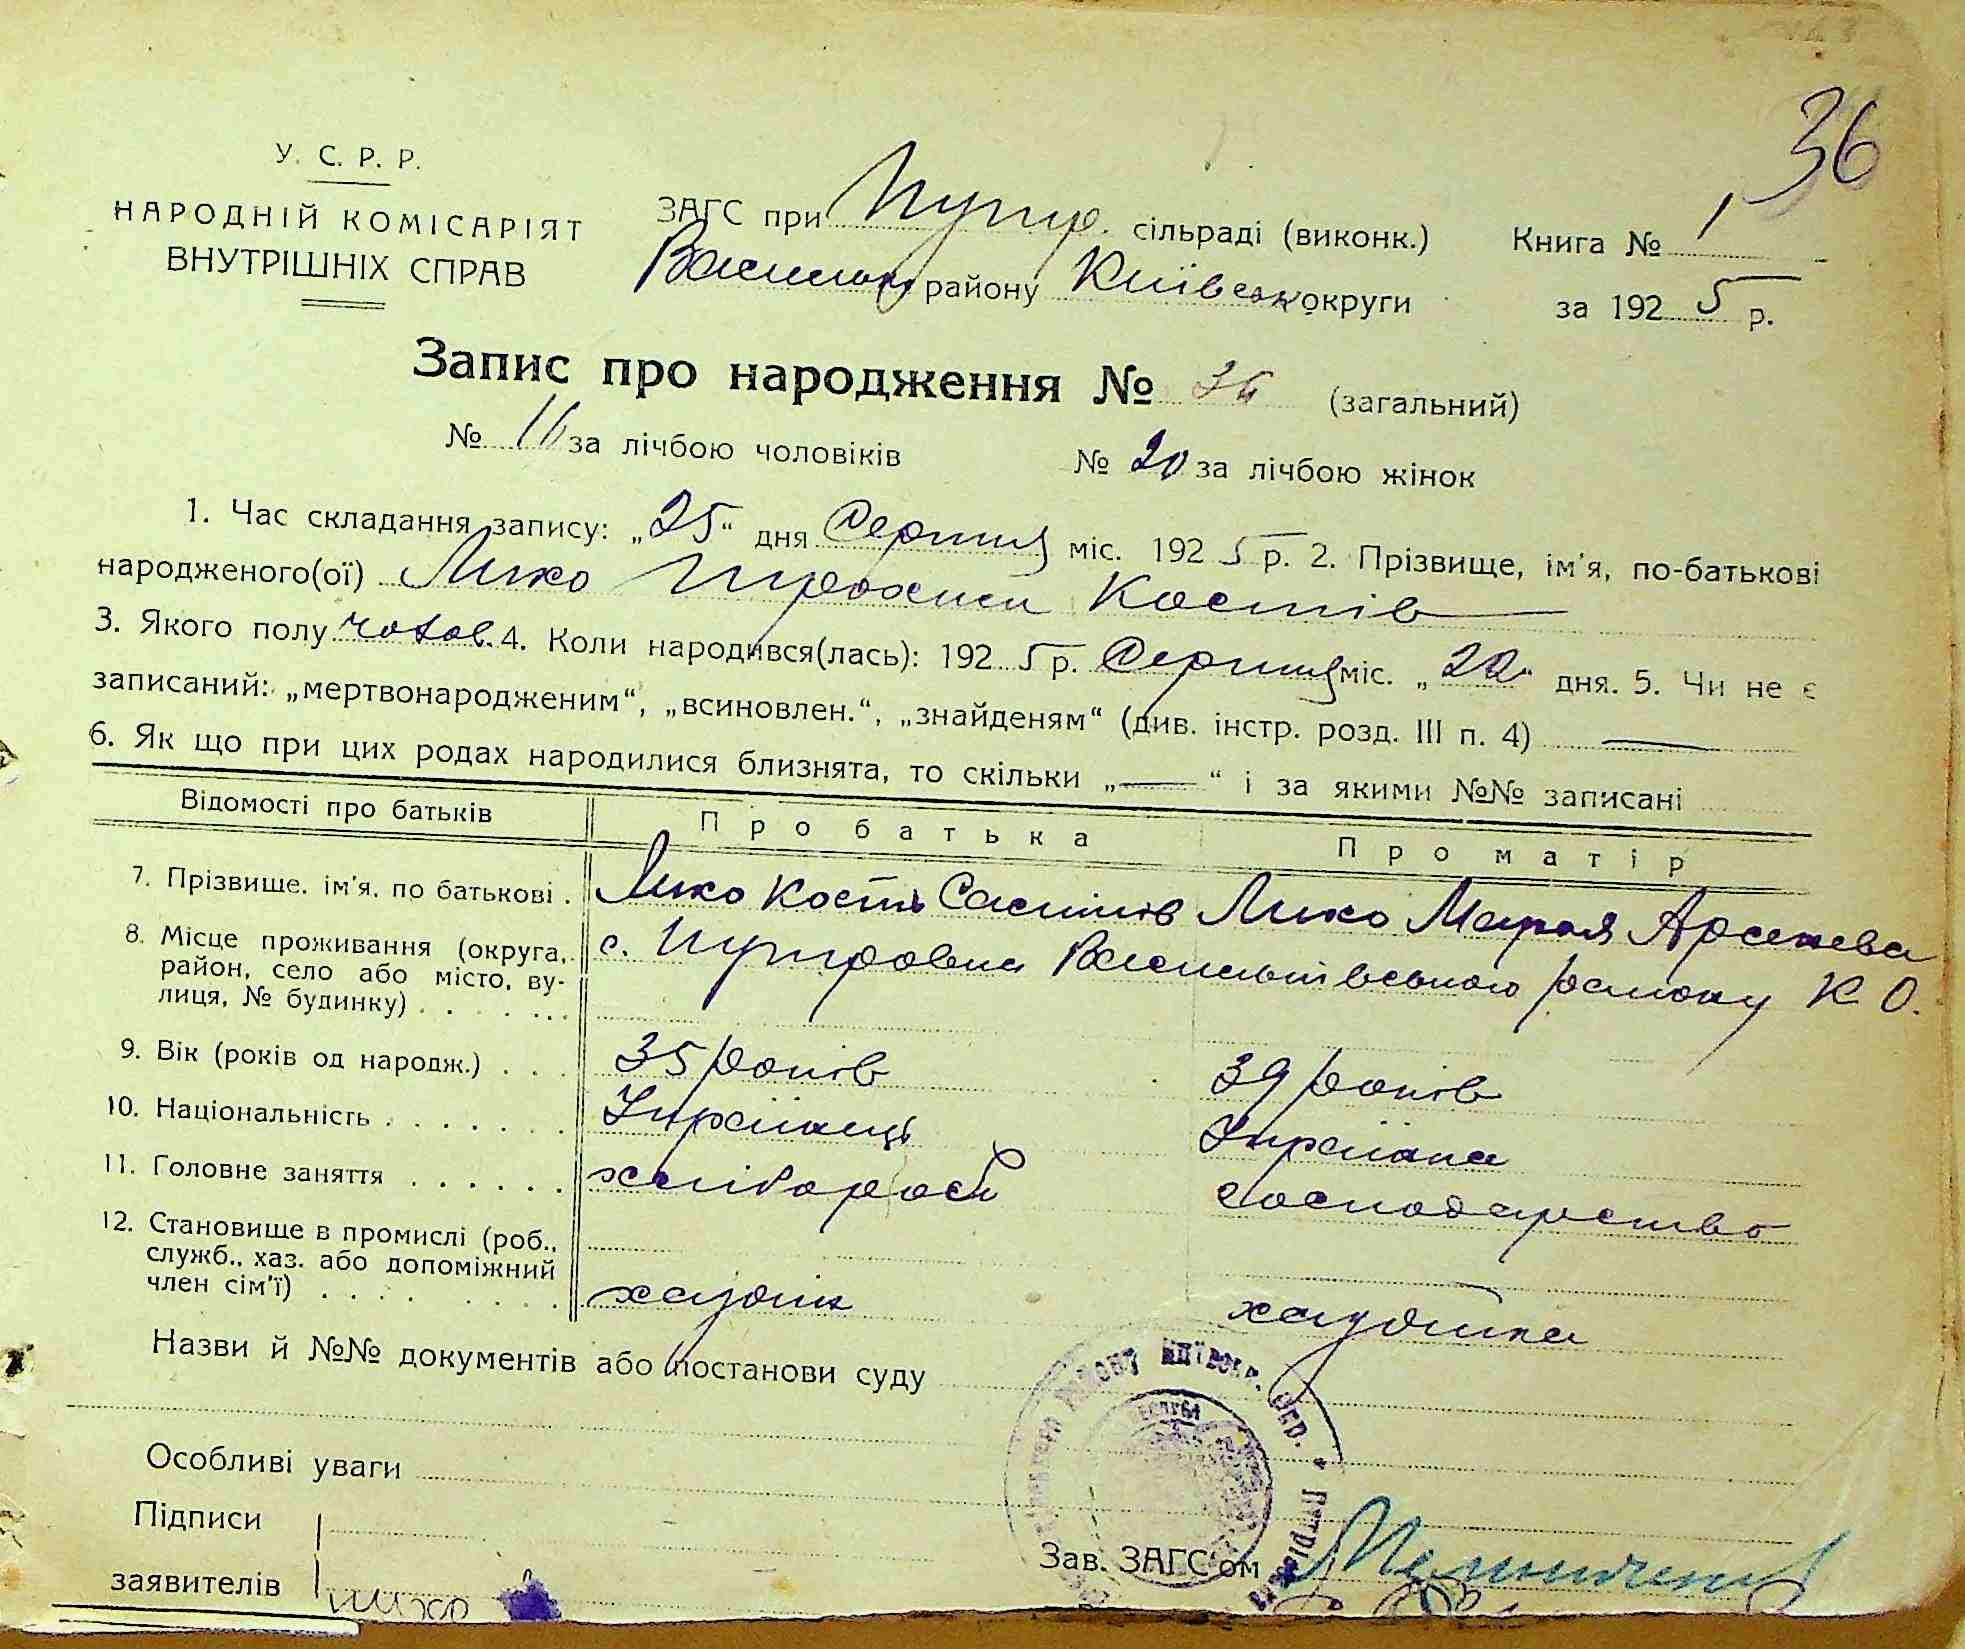 36
У. С. Р. Р.
НАРОДНІЙ КОМІСАРІЯТ
ВНУТРІШНІХ СПРАВ
ЗАГС при сільраді (виконк.)
району Київськ округи
Книга № 1
за 1925 р.
Запис про народження № 36 (загальний)
№ 16 за лічбою чоловіків № 20 за лічбою жінок
1. Час складання запису: „25“ дня Серпня міс. 1925 р. 2. Прізвище, ім'я, по-батькові
народженого(ої) Лихо Костів
3. Якого полу чолов. 4. Коли народився(лась): 1925 р. Серпня міс. „22“ дня. 5. Чи не є
записаний: „мертвонародженим“, „всиновлен.“, „знайденям“ (див. інстр. розд. III п. 4) —
6. Як що при цих родах народилися близнята, то скільки „—“ і за якими №№ записані
Відомості про батьків Про батька Про матір
7. Прізвише, ім'я, по батькові . Лихо Кость Лихо Марія Арсенева
8. Місце проживання (округа, район, село або місто, вулиця, № будинку) с. Васильківського району К О.
9. Вік (років од народж.) 35 років 39 років
10. Національність Українець Українка
11. Головне заняття хлібороб господарство
12. Становище в промислі (роб., служб., хаз. або допоміжний член сім'ї)
Назви й №№ документів або постанови суду
Особливі уваги
Підписи
заявителів Лихо
Зав. ЗАГС'ом